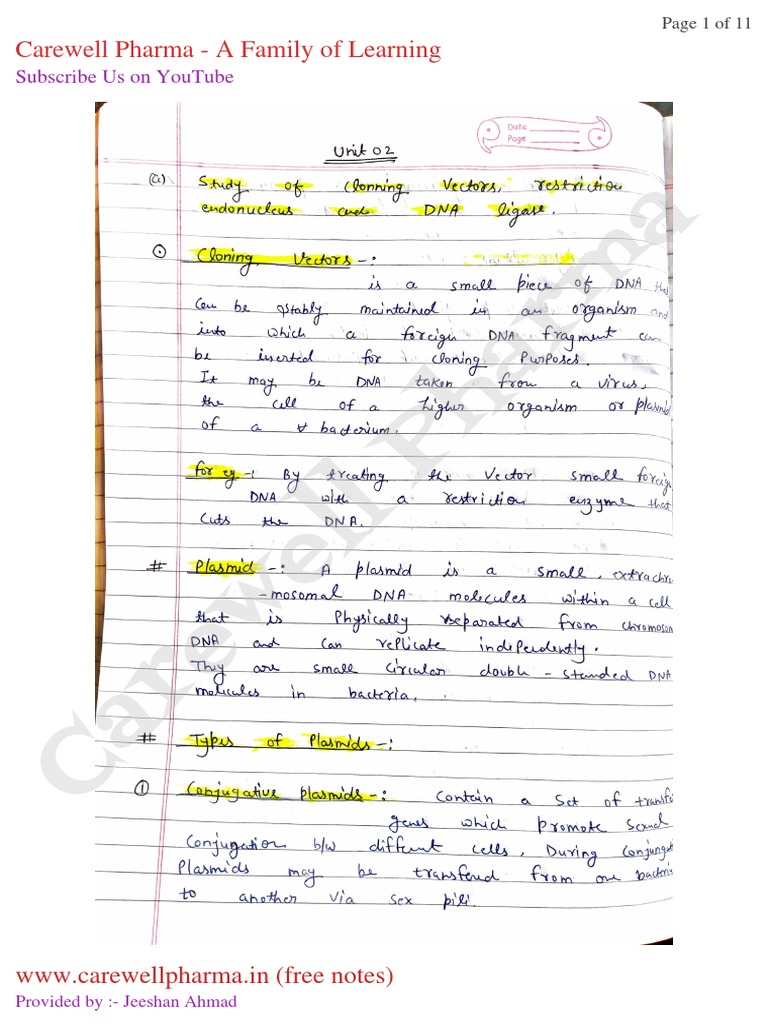 Page 1 of 11
Carewell Pharma - A Family of Learning
Subscribe Us on YouTube
Date
Page
Unit 02
(a) Study of Clonning Vectors, restriction
endonucleus and DNA ligase.
Cloning Vectors -:
is a small piece of DNA that
Can be stably maintained in an organism and
into which a foreign DNA fragment can
be inserted for cloning Purposes.
It may be DNA taken from a virus,
the cell of a higher organism or plasmid
of a bacterium.
for eg -: By treating the Vector small foreign
DNA with a restriction enzyme that
Cuts the DNA.
# Plasmid -: A plasmid is a small, extrachro
-mosomal DNA molecules within a cell
that is Physically separated from chromosom
DNA and can replicate independently.
They are small Circular double - standed DNA
molecules in bacteria.
# Types of Plasmids -:
① Conjugative plasmids -: Contain a Set of transfe
genes which promote Sexual
Conjugation b/w different cells, During Conjungat
Plasmids may be transfered from one bacteria
to another via sex pili.
Carewell Pharma
www.carewellpharma.in (free notes)
Provided by :- Jeeshan Ahmad